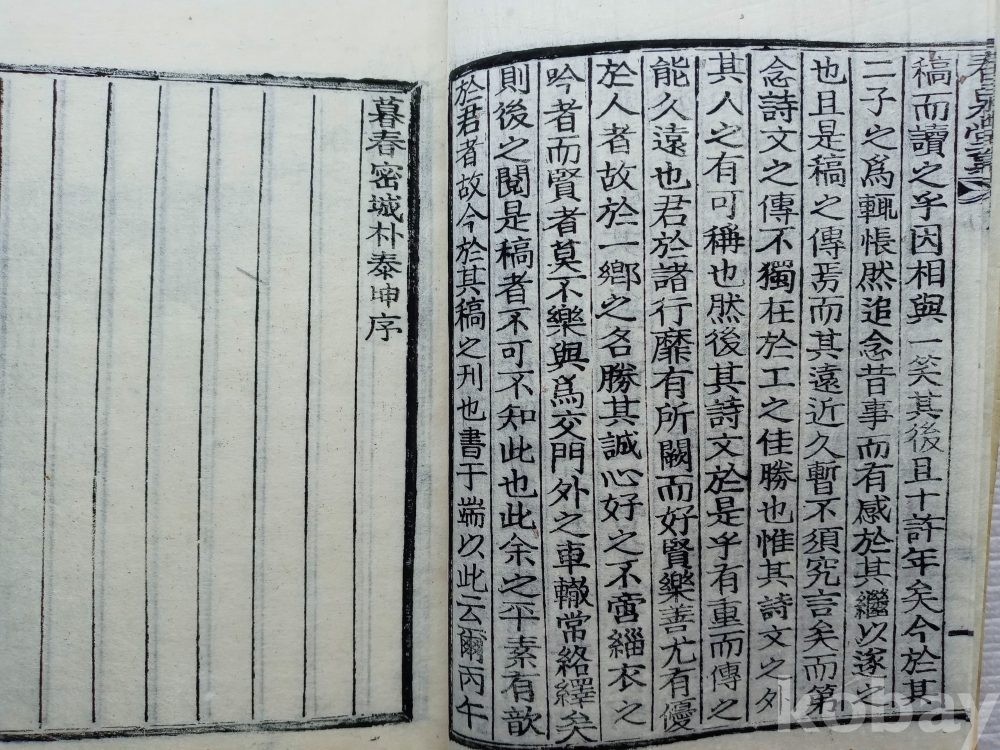 稿而讀之乎因相與一笑其後且十許年矣今於其
二子之爲輒悵然追念昔事而有感於其繼以遂之
也且是稿之傳焉而其遠近久暫不須究言矣而第
念詩文之傳不獨在於工之佳勝也惟其詩文之外
其人之有可稱也然後其詩文於是乎有重而傳之
能久遠也君於諸行靡有所闕而好賢樂善尤有優
於人者故於一鄕之名勝其誠心好之不啻緇衣之
吟者而賢者莫不樂與爲交門外之車轍常絡繹矣
則後之閱是稿者不可不知此也此余之平素有歆
於君者故今於其稿之刊也書于端以此云爾丙午
暮春密城朴泰坤序
kobay